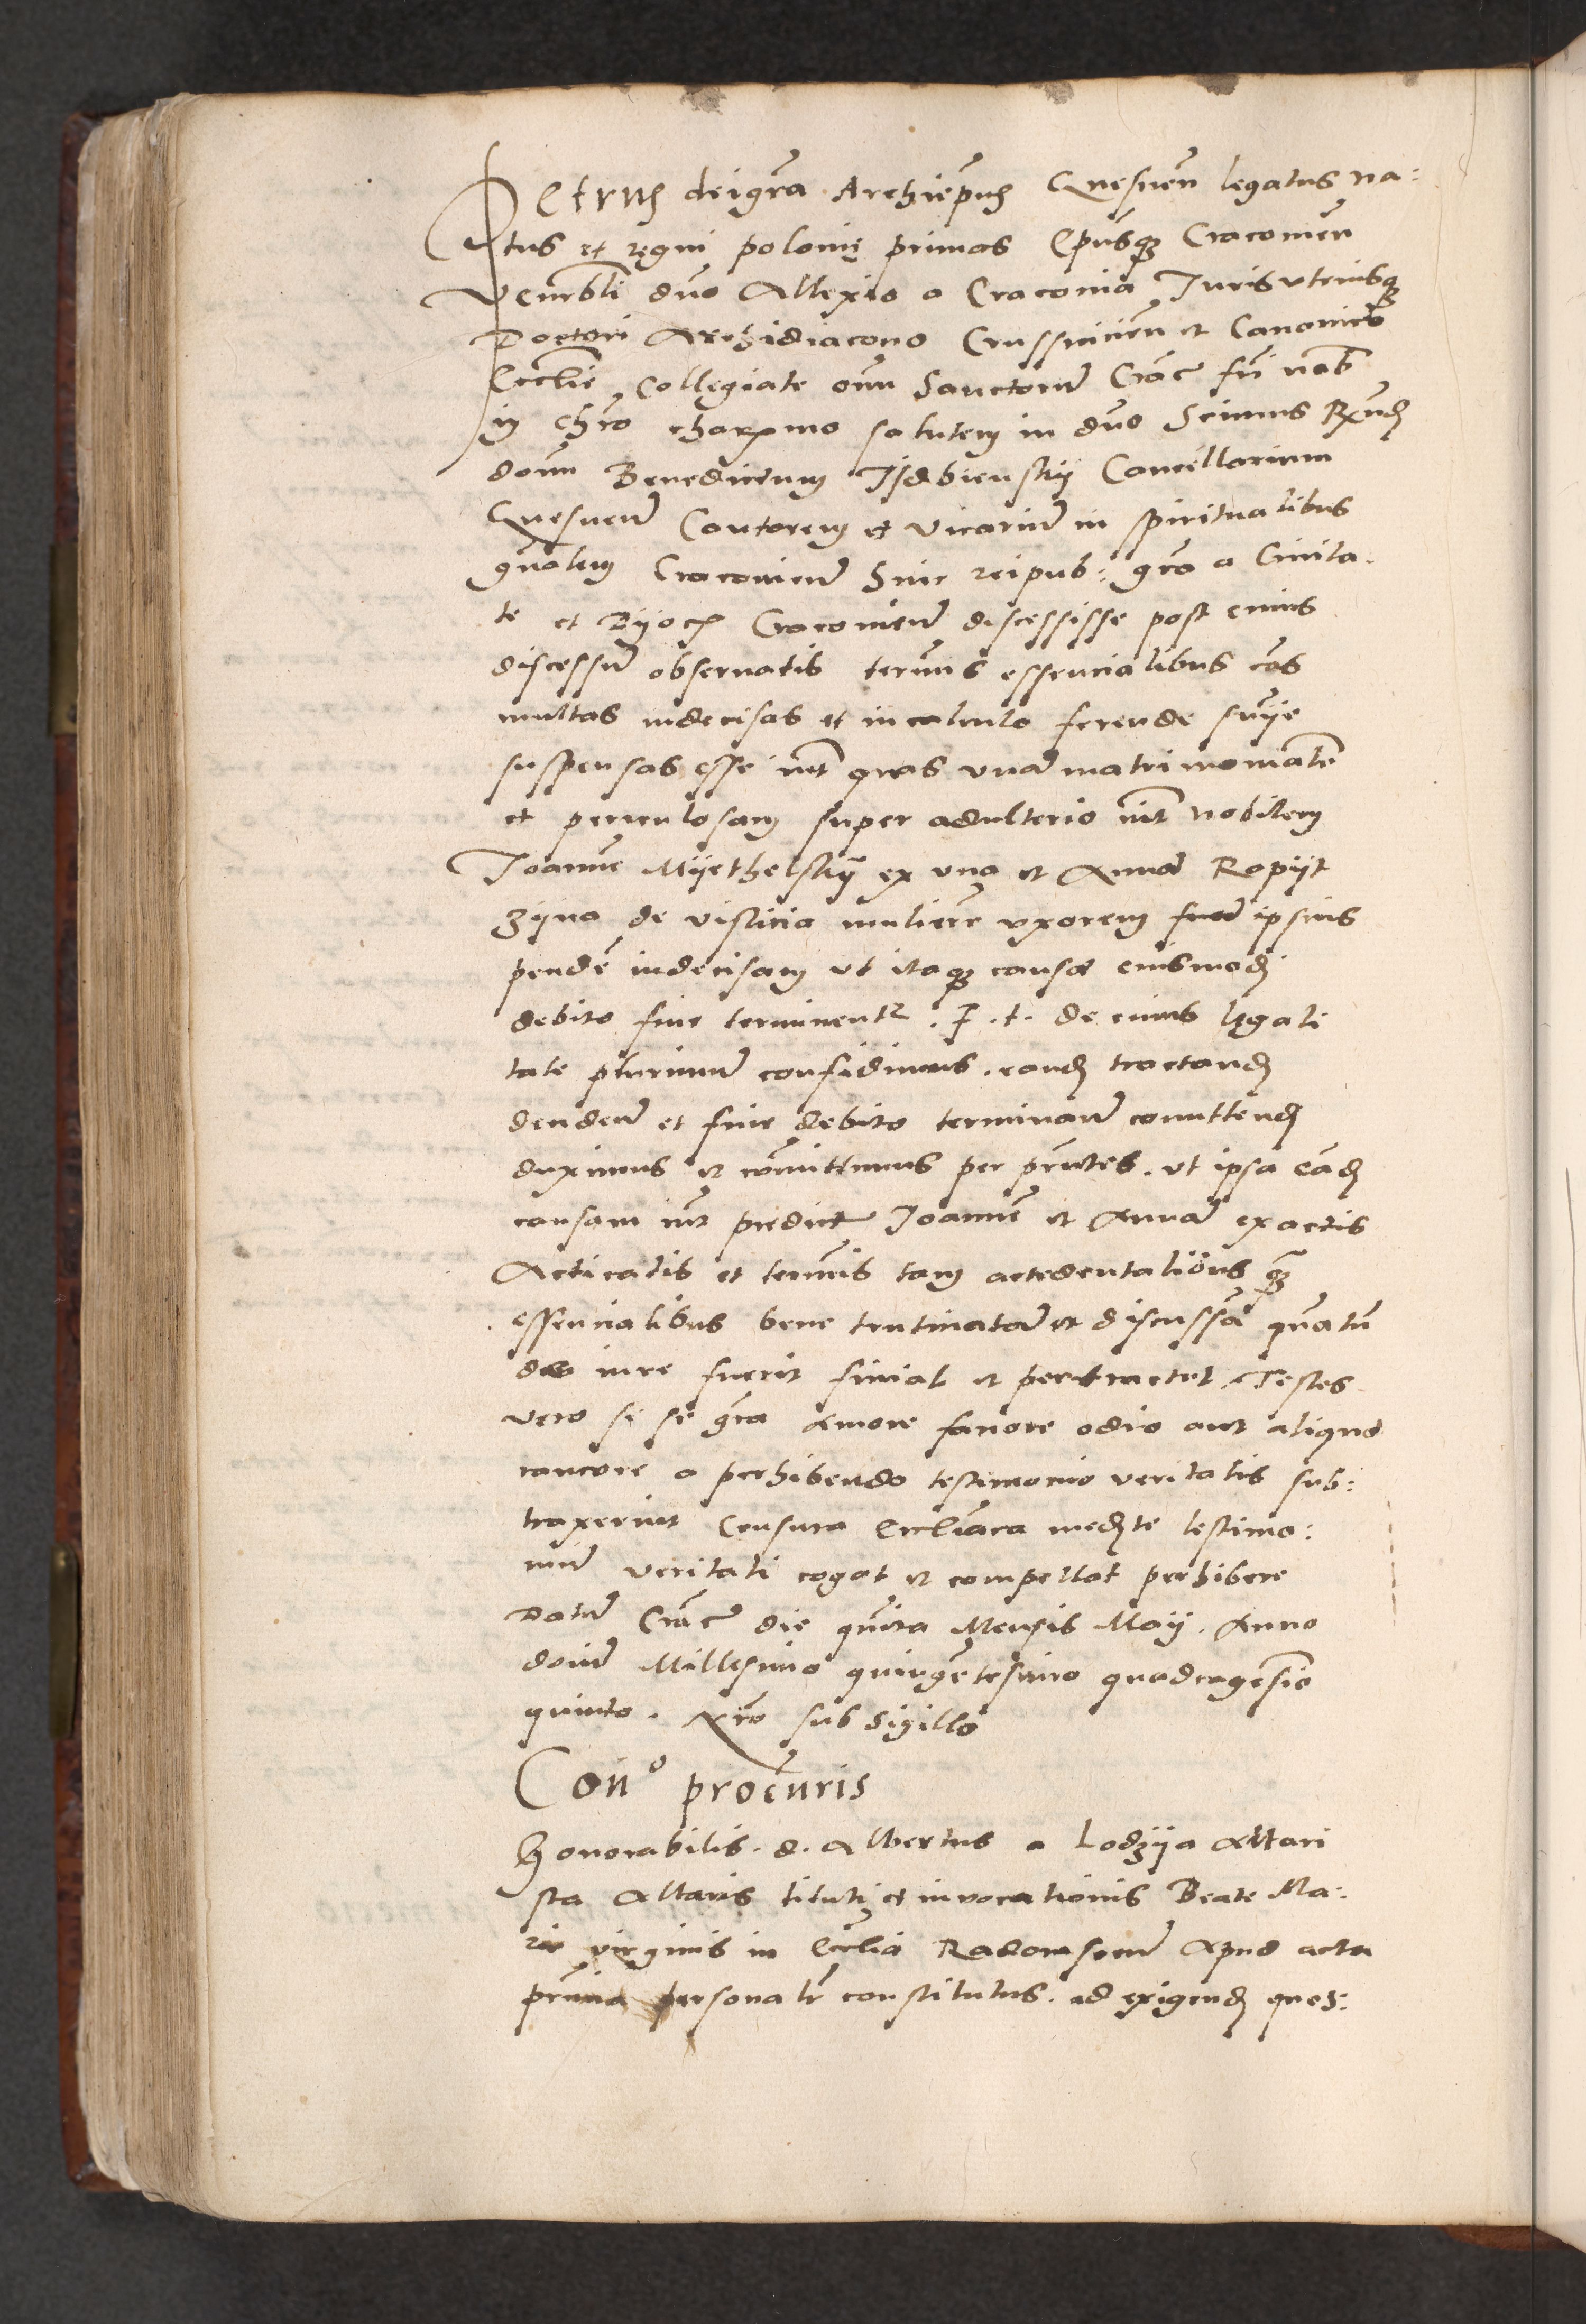 Petrus dei gra Archiepus Gnesnen legatus na:
tus et regni polonię primas Epusq Cracovien
Venrbli dno Allexio a Cracovia Iuris utriusq
Doctori Archidiacono Crussvicien et Canonico
Ecclie Collegiate omn Sanctorum Crac fri nob
in chro charmo salutem in dno Scimus Rndm
domn Benedictum Isdbienskij Cancellarium
Gnesnen Cantorem et vicarium in spiritualibus
gnalem Cracovien Suic reipub: gra a Civita.
te et Dyoc Cracovien discessisse post cuius
discessum observatis termis essencialibus cas
multas indecisas et in calculo ferende snije
suspensas esse int quas unam matrimonialem
et periculosam super adulterio int nobilem
Joannem Myethelsky ex una et Annam Ropyt
zyna de visticia mulierem uxorem ipsius
pendē indecisam ut itaq causae eiusmodi
debito fine terminentur . F. t. de cuius legali
tate plurimum confidimus . eand tractand
dendum et fine debito terminan comittend
duximus et comittimus per prntes . ut ipsa eand
causam int predict Joannem et Annam ex actis
Acticatis et termis tam accedentalibus qm
essencialibus bene trutinatam et discussam quātum
de iure fuerit finiat et pertractet . Testes
vero si se gra Amore favore odio aut aliquo
rancore a perhibendo testimonio veritatis sub:
traxerint Censura Ecclīaca medite testimo:
nium veritati cogat et compellat perhibere
Datum Crac die quīta Mensis Maij . Anno
domi Millesimo quingētesimo quadragesio
quinto . nro sub sigillo
Con° procuris
Honorabilis . d. Albertus a Lodzija Altari
sta Altaris tituli et invocationis Beate Ma:
rie virginis in Ecclia Radomscen Apud acta
prntia personalr constitutus . ad exigend quos: